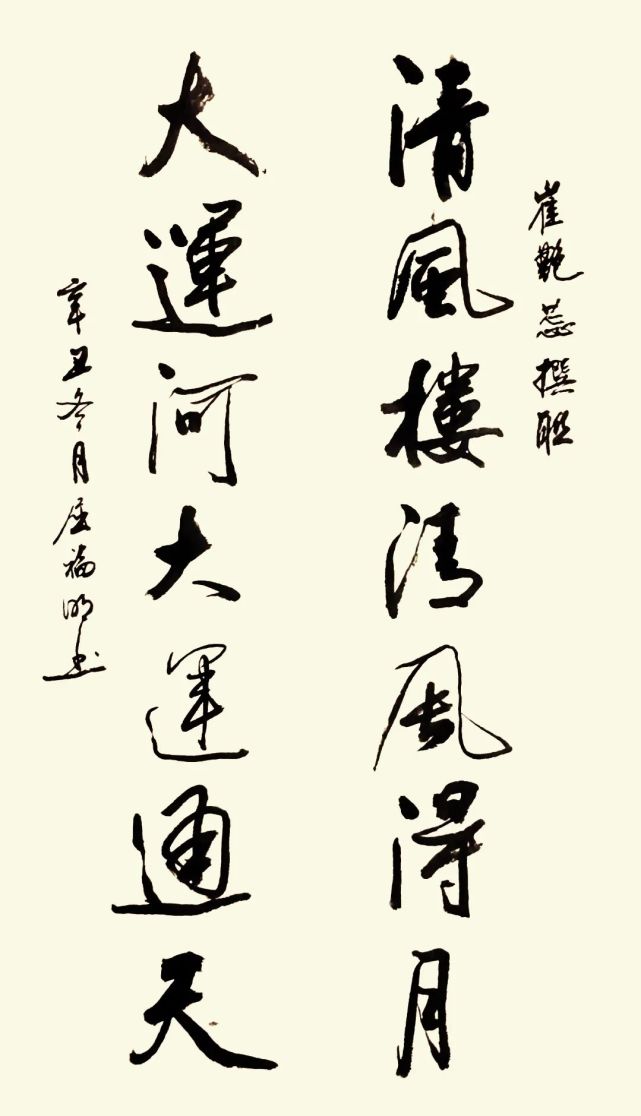 崔艷蕊撰联
清風樓清風得月
大運河大運通天
辛丑冬月屈福明书